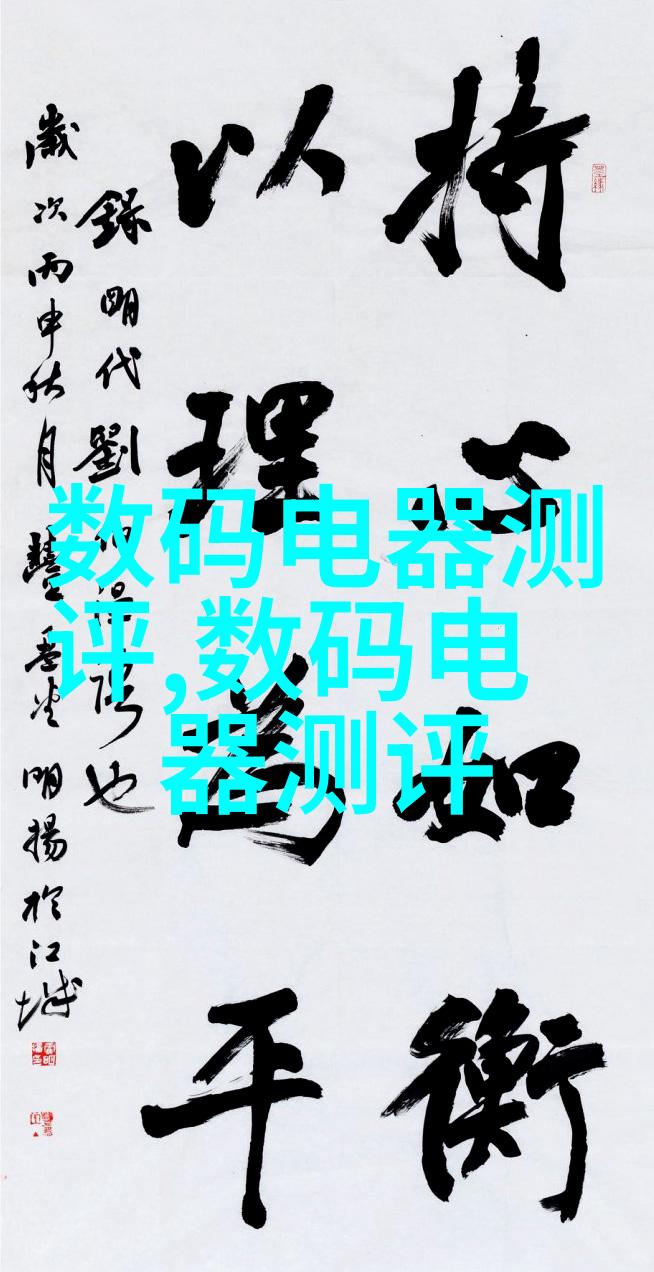 持心如衡
以理为平
錄明代劉伯温語也
歲次丙申秋月
明揚於江城
数码电器测
评,数码电
器测评